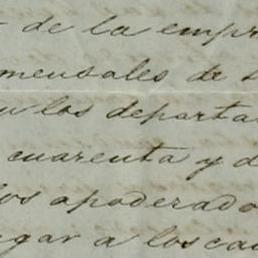 de la empr
mensales de s
los departa
cuarenta y d
los apoderado
gar a los cau